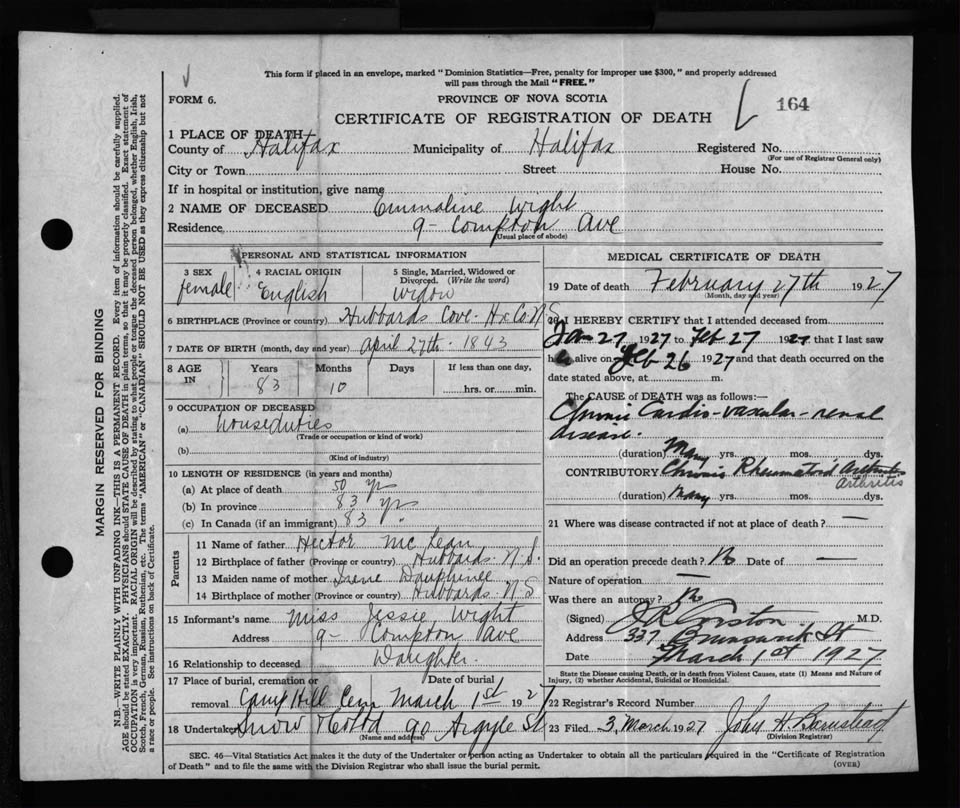 This form if placed in an envelope, marked "Dominion Statistics—Free, penalty for improper use $300," and properly addressed
will pass through the Mail "FREE."
FORM 6.
PROVINCE OF NOVA SCOTIA
164
CERTIFICATE OF REGISTRATION OF DEATH
1 PLACE OF DEATH
County of Halifax Municipality of Halifax Registered No.
(For use of Registrar General only)
City or Town Street House No.
If in hospital or institution, give name
2 NAME OF DECEASED Emmaline Wight
Residence 9- Compton Ave
(Usual place of abode)
PERSONAL AND STATISTICAL INFORMATION
3 SEX 4 RACIAL ORIGIN 5 Single, Married, Widowed or
Divorced. (Write the word)
female English Widow
6 BIRTHPLACE (Province or country) Hubbards Cove Hx Co N.S.
7 DATE OF BIRTH (month, day and year) April 27th 1843
8 AGE IN Years Months Days If less than one day,
83 10 hrs. or min.
9 OCCUPATION OF DECEASED
(a) houseduties
(Trade or occupation or kind of work)
(b)
(Kind of industry)
10 LENGTH OF RESIDENCE (in years and months)
(a) At place of death 50 yrs
(b) In province 83 yrs
(c) In Canada (if an immigrant) 83 "
Parents
11 Name of father Hector McLean
12 Birthplace of father (Province or country) Hubbards N.S.
13 Maiden name of mother Irene Dauphinee
14 Birthplace of mother (Province or country) Hubbards N S
15 Informant's name Miss Jessie Wight
Address 9- Compton Ave
16 Relationship to deceased Daughter.
17 Place of burial, cremation or Date of burial
removal Camp Hill Cem March 1st 1927
18 Undertaker Snow & Co Ltd 90 Argyle St
(Name and address)
MEDICAL CERTIFICATE OF DEATH
19 Date of death February 27th 1927
(Month, day and year)
20 I HEREBY CERTIFY that I attended deceased from
Jan 27 1927 to Feb 27 1927 that I last saw
h alive on Feb 26 1927 and that death occurred on the
date stated above, at m.
The CAUSE of DEATH was as follows:—
Chronic Cardio-vascular-renal
disease.
(duration) Many yrs. mos. dys.
CONTRIBUTORY Chronic Rheumatoid Arthritis
Arthritis
(duration) Many yrs. mos. dys.
21 Where was disease contracted if not at place of death? —
Did an operation precede death? No Date of —
Nature of operation —
Was there an autopsy? No
(Signed) Corston M.D.
Address 337 Brunswick St
Date March 1st 1927
State the Disease causing Death, or in death from Violent Causes, state (1) Means and Nature of
Injury, (2) whether Accidental, Suicidal or Homicidal.
22 Registrar's Record Number
23 Filed 3 March 1927 John H Barnstead
(Division Registrar)
SEC. 46—Vital Statistics Act makes it the duty of the Undertaker or person acting as Undertaker to obtain all the particulars required in the "Certificate of Registration
of Death" and to file the same with the Division Registrar who shall issue the burial permit.
(OVER)
MARGIN RESERVED FOR BINDING
N.B.—WRITE PLAINLY WITH UNFADING INK—THIS IS A PERMANENT RECORD. Every item of information should be carefully supplied.
AGE should be stated EXACTLY. PHYSICIANS should STATE CAUSE OF DEATH in plain terms, so that it may be properly classified. Exact statement of
OCCUPATION is very important. RACIAL ORIGIN will be described by stating to what people or tongue the deceased person belonged, whether English, Irish,
Scotch, French, German, Russian, Ruthenian, etc. The terms "AMERICAN" or "CANADIAN" SHOULD NOT BE USED as they express citizenship but not
a race or people. See instructions on back of Certificate.